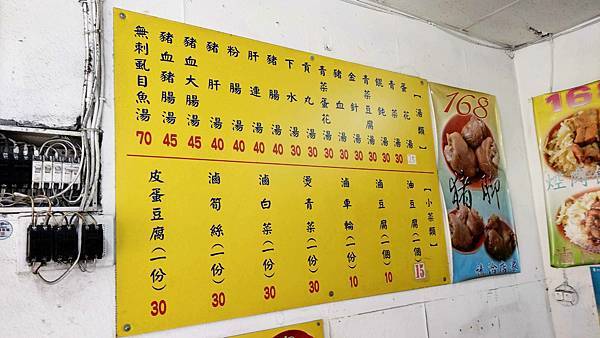 【湯類】
蛋花湯
青菜湯 30
餛飩湯 30
青菜豆腐湯 30
金針湯 30
豬血湯 30
青菜蛋花湯 30
貢丸湯 30
下水湯 30
豬腸湯 40
肝連湯 40
粉腸湯 40
豬肝湯 40
豬血大腸湯 45
豬血豬腸湯 45
無刺虱目魚湯 70
【小菜類】
油豆腐(一個) 15
滷豆腐(一個) 10
滷車輪(一個) 10
燙青菜(一份) 30
滷白菜(一份) 30
滷筍絲(一份) 30
皮蛋豆腐(一份) 30
168
豬腳
168